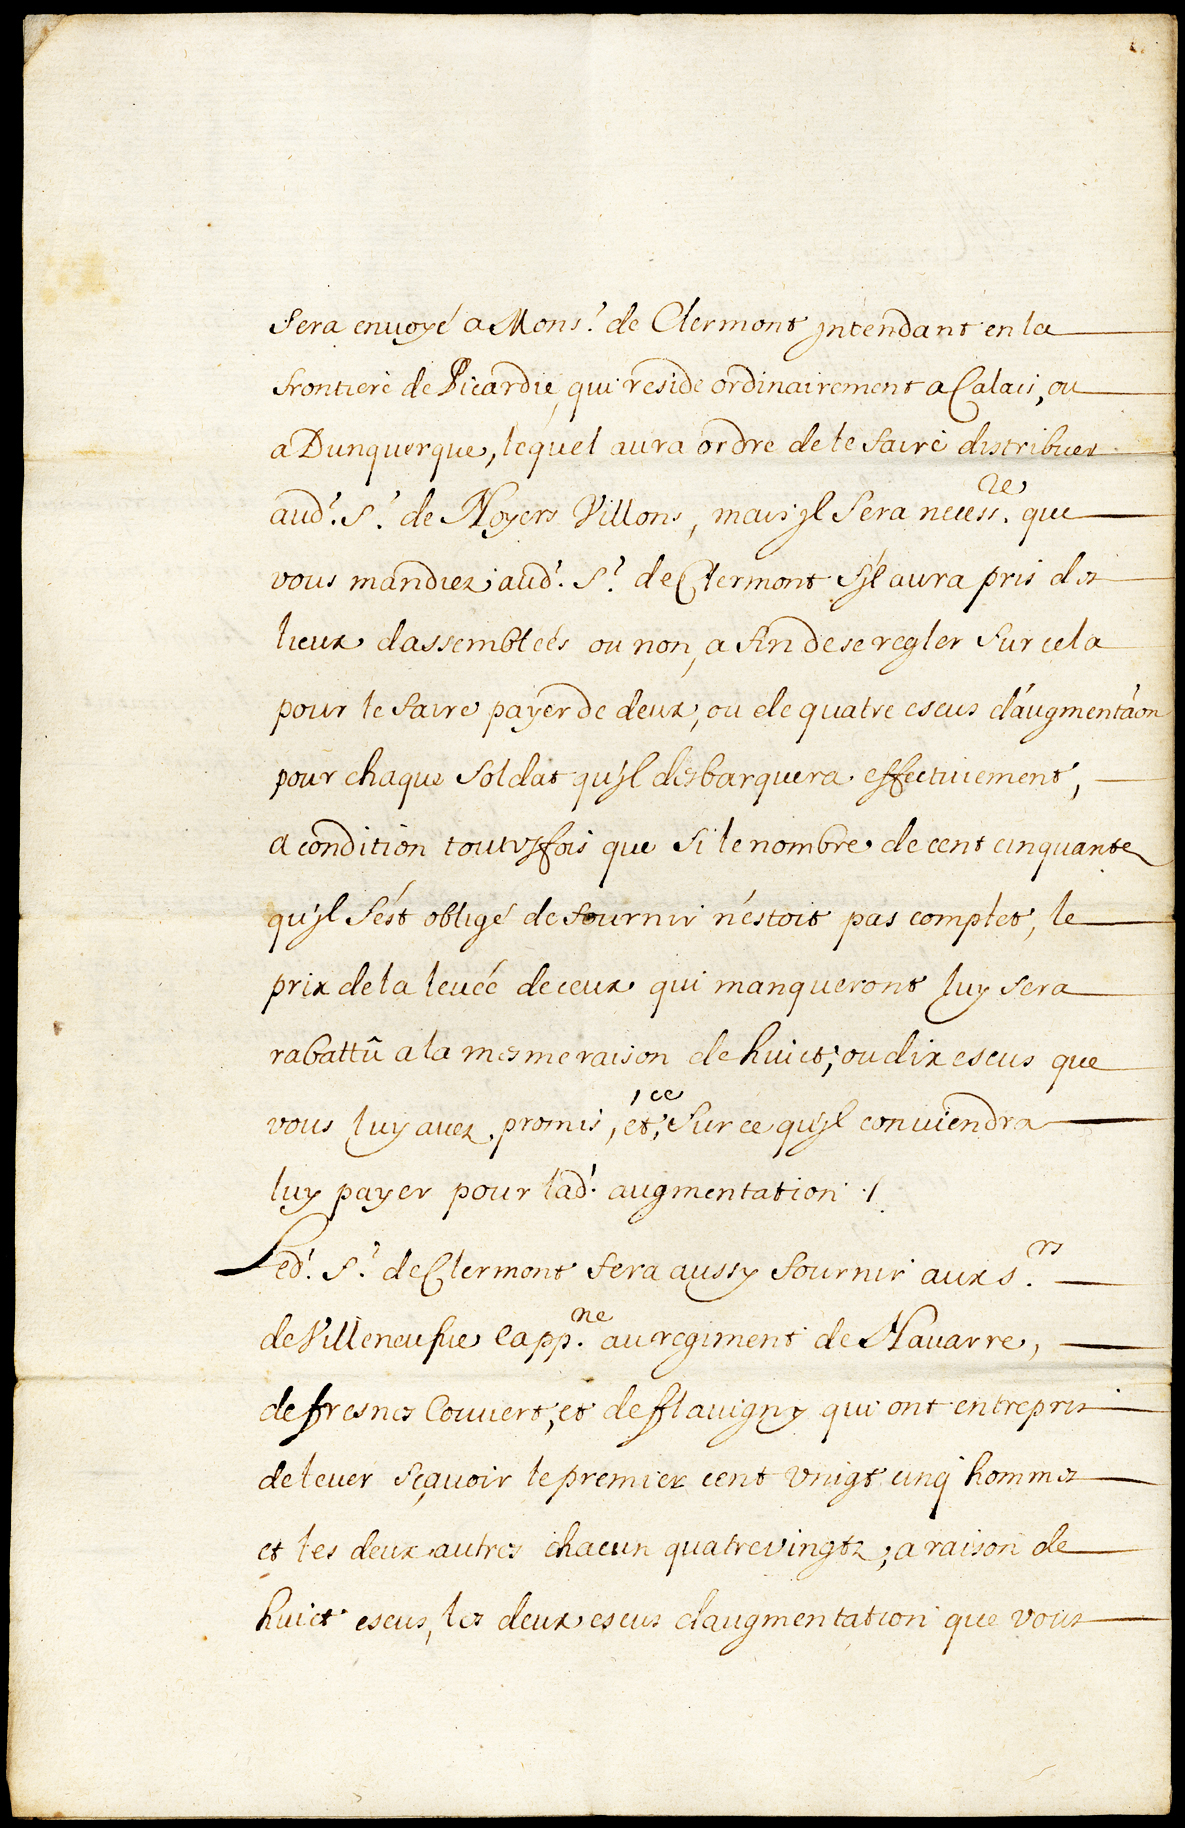 sera enuoyé a Mons.r de Clermont jntendant en la
frontiere de Picardie, qui reside ordinairement a Calais, ou
a Dunquerque, lequel aura ordre de le faire distribuer
aud.t S.r de Noyers Villons, mais jl sera necess.re que
vous mandiez aud.t S.r de Clermont s'jl aura pris des
lieux dassemblées ou non, a fin de se regler sur cela
pour le faire payer de deux, ou de quatre escus d'augmentãon
pour chaque soldat qu'jl desbarquera effectiuement,
a condition toutesfois que si le nombre de cent cinquante
qu'jl s'est obligé de fournir n'estoit pas complet, le
prix de la leuée de ceux qui manqueront luy sera
rabattû a la mesme raison de huict, ou dix escus que
vous luy auez promis, et, ce sur ce qu'jl conuiendra
luy payer pour lad.t augmentation ./.
Led.t S.r de Clermont fera aussy fournir aux S.rs
de Villeneufue Capp.ne au regiment de Nauarre,
de fresnes Couuert, et de fflauigny qui ont entrepris
de leuer sçauoir le premier cent vnigt cinq hommes
et les deux autres chacun quatrevingtz, a raison de
huict escus, les deux escus daugmentation que vous